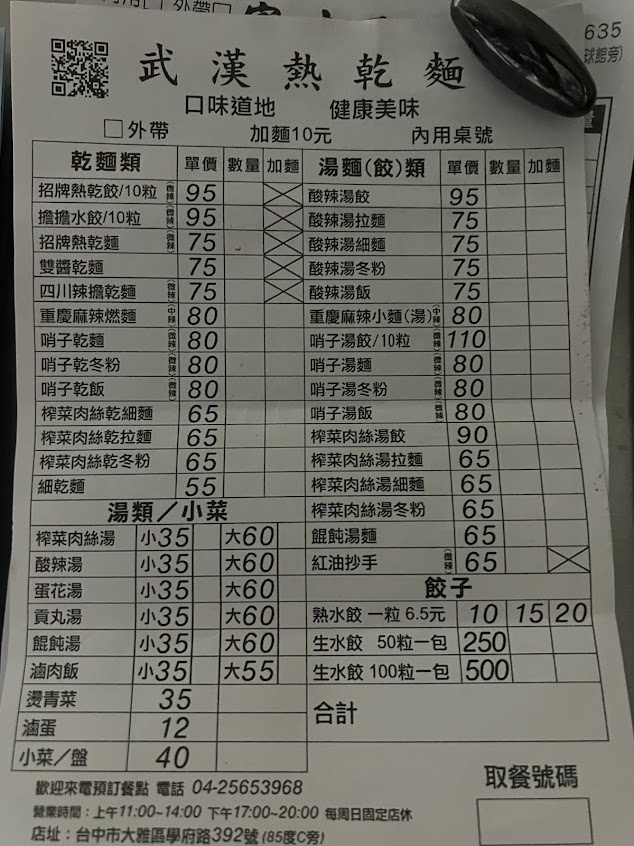 635
球館旁)
外帶□
武漢熱乾麵
口味道地 健康美味
□外帶 加麵10元 內用桌號
乾麵類 單價 數量 加麵
招牌熱乾餃/10粒 (微辣) 95
擔擔水餃/10粒 (微辣) 95
招牌熱乾麵 (微辣) 75
雙醬乾麵 75
四川辣擔乾麵 (微辣) 75
重慶麻辣燃麵 (中辣) 80
哨子乾麵 (微辣) 80
哨子乾冬粉 (微辣) 80
哨子乾飯 (微辣) 80
榨菜肉絲乾細麵 65
榨菜肉絲乾拉麵 65
榨菜肉絲乾冬粉 65
細乾麵 55
湯類／小菜
榨菜肉絲湯 小35 大60
酸辣湯 小35 大60
蛋花湯 小35 大60
貢丸湯 小35 大60
餛飩湯 小35 大60
滷肉飯 小35 大55
燙青菜 35
滷蛋 12
小菜／盤 40
湯麵(餃)類 單價 數量 加麵
酸辣湯餃 95
酸辣湯拉麵 75
酸辣湯細麵 75
酸辣湯冬粉 75
酸辣湯飯 75
重慶麻辣小麵(湯) (中辣) 80
哨子湯餃/10粒 (微辣) 110
哨子湯麵 (微辣) 80
哨子湯冬粉 (微辣) 80
哨子湯飯 (微辣) 80
榨菜肉絲湯餃 90
榨菜肉絲湯拉麵 65
榨菜肉絲湯細麵 65
榨菜肉絲湯冬粉 65
餛飩湯麵 65
紅油抄手 (微辣) 65
餃子
熟水餃 一粒 6.5元 10 15 20
生水餃 50粒一包 250
生水餃 100粒一包 500
合計
歡迎來電預訂餐點 電話 04-25653968
營業時間：上午11:00~14:00 下午17:00~20:00 每周日固定店休
店址：台中市大雅區學府路392號 (85度C旁)
取餐號碼